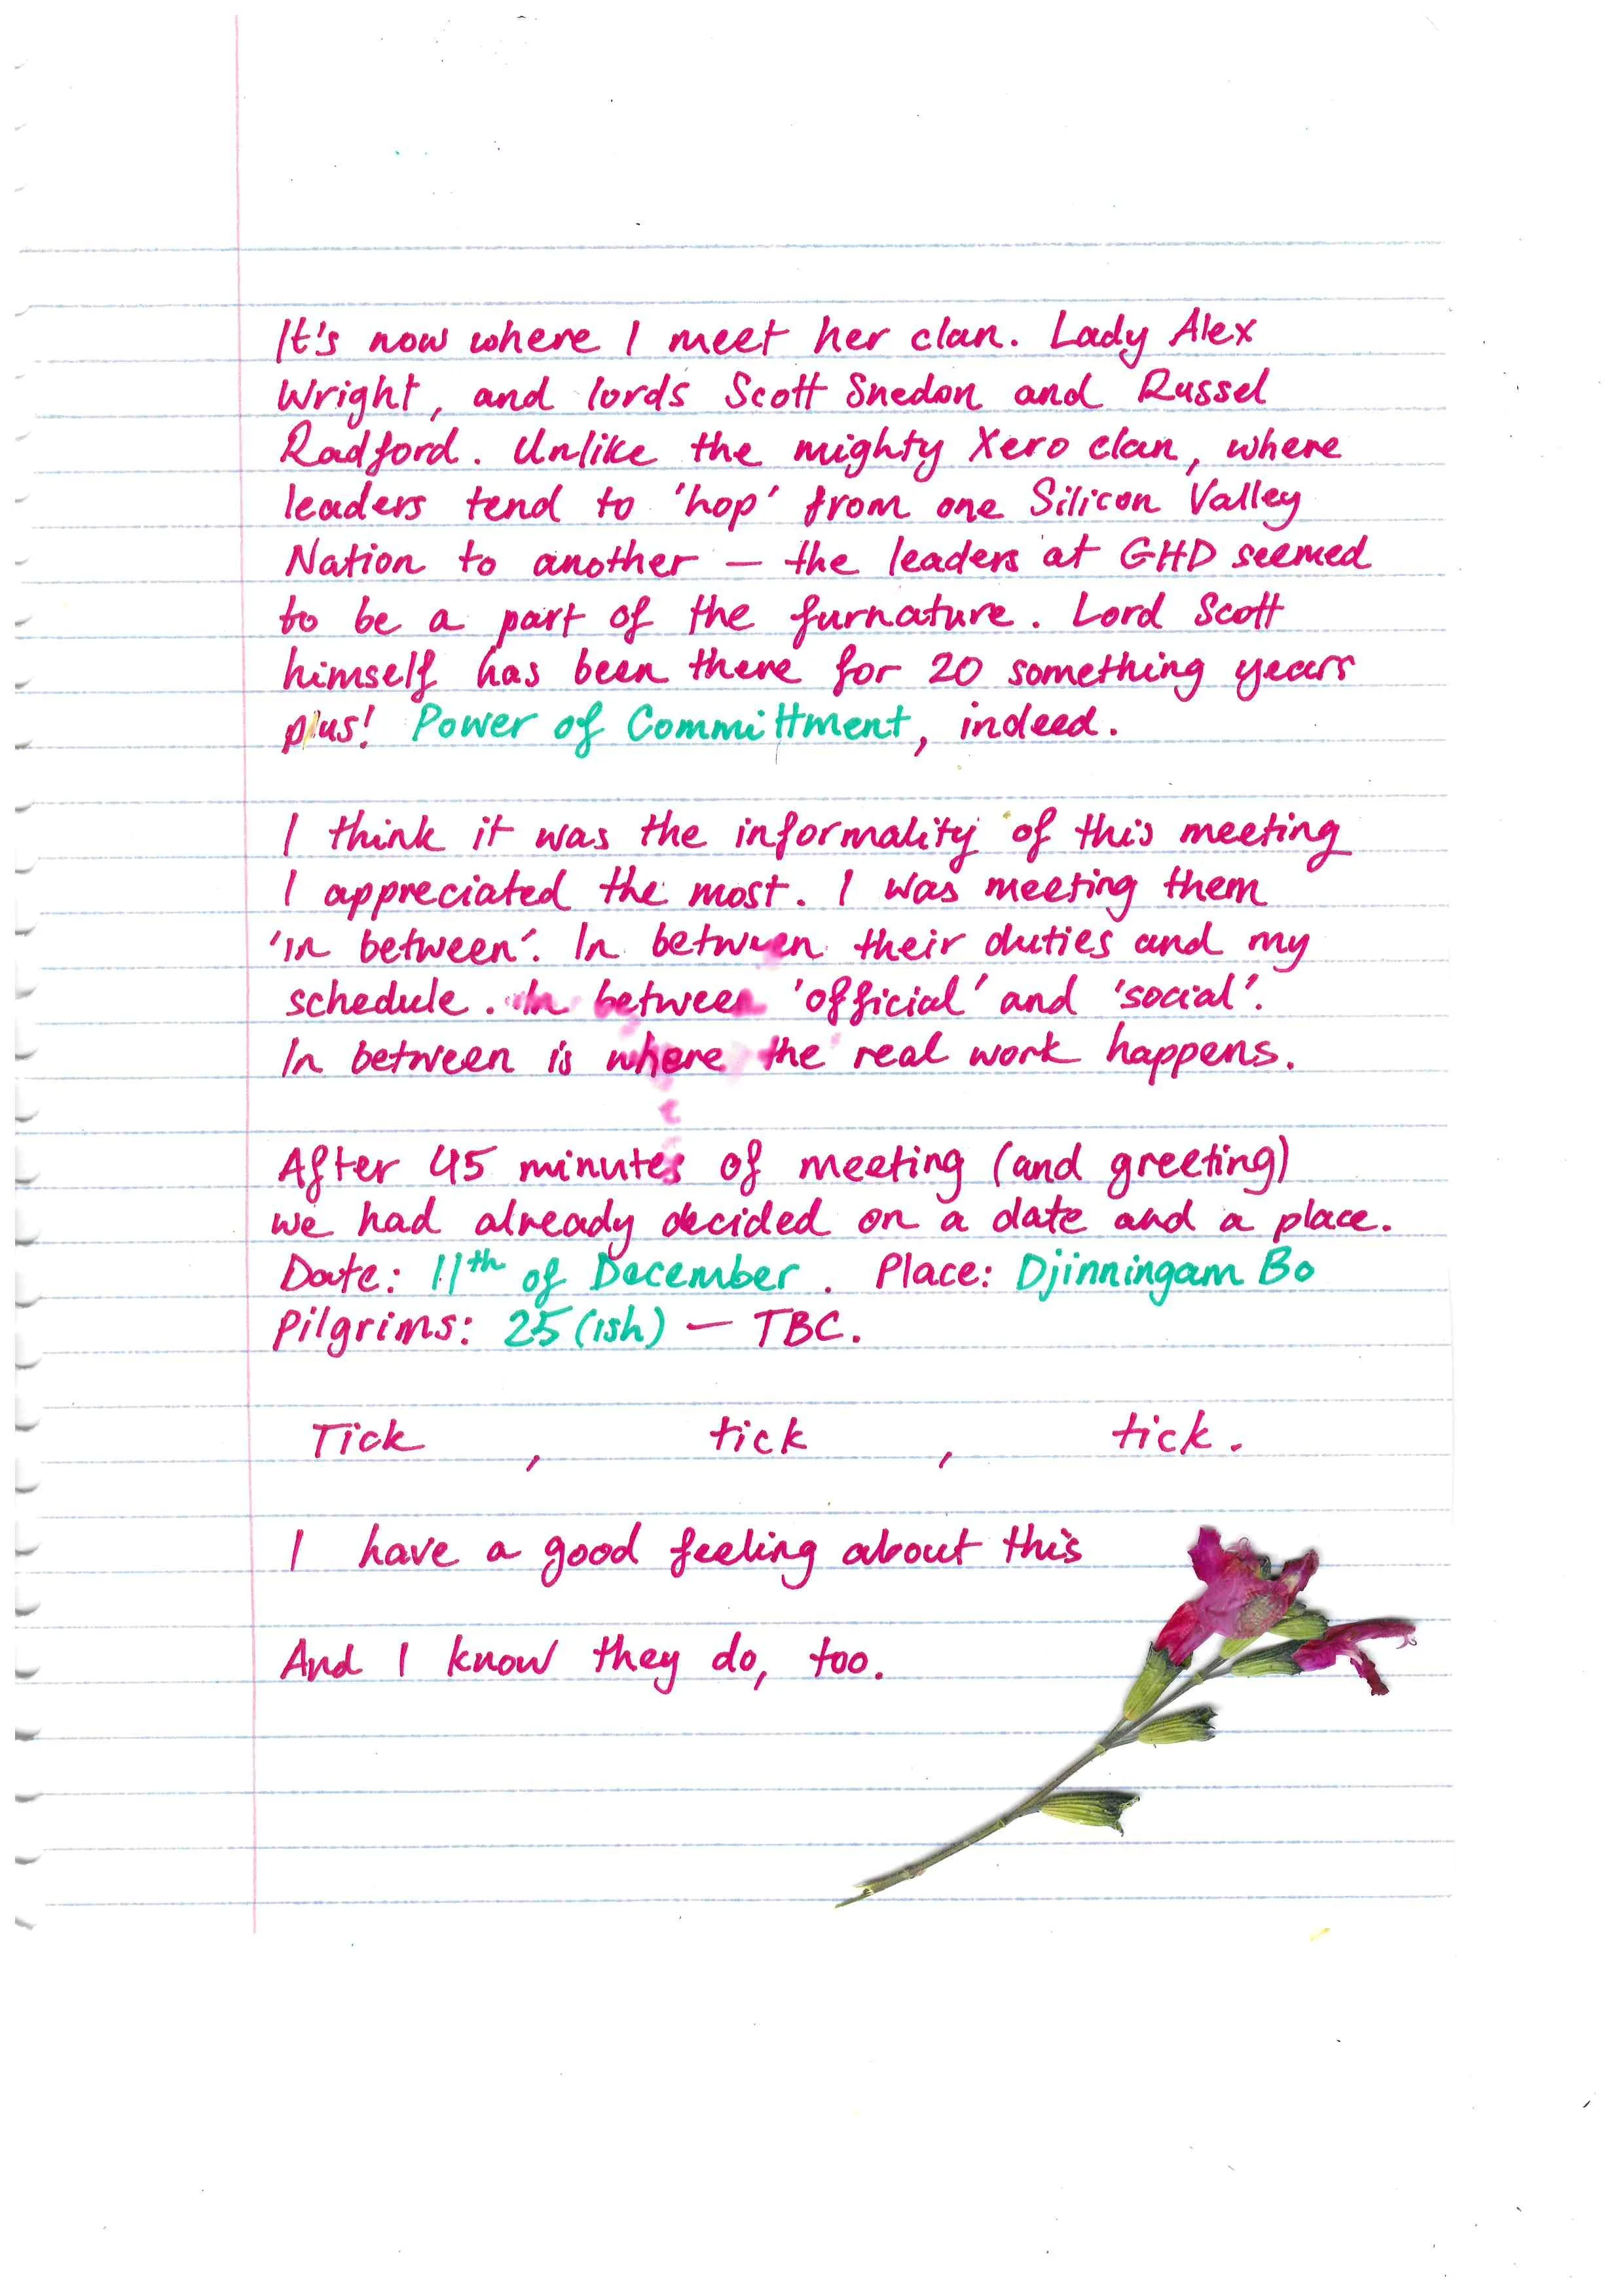 It's now where I meet her clan. Lady Alex
Wright, and lords Scott Snedon and Russel
Radford. Unlike the mighty Xero clan, where
leaders tend to 'hop' from one Silicon Valley
Nation to another — the leaders at GHD seemed
to be a part of the furnature. Lord Scott
himself has been there for 20 something years
plus! Power of Committment, indeed.
I think it was the informality of this meeting
I appreciated the most. I was meeting them
'in between'. In between their duties and my
schedule. In between 'official' and 'social'.
In between is where the real work happens.
After 45 minutes of meeting (and greeting)
we had already decided on a date and a place.
Date: 11th of December. Place: Djinningam Bo
Pilgrims: 25(ish) — TBC.
Tick, tick, tick.
I have a good feeling about this
And I know they do, too.